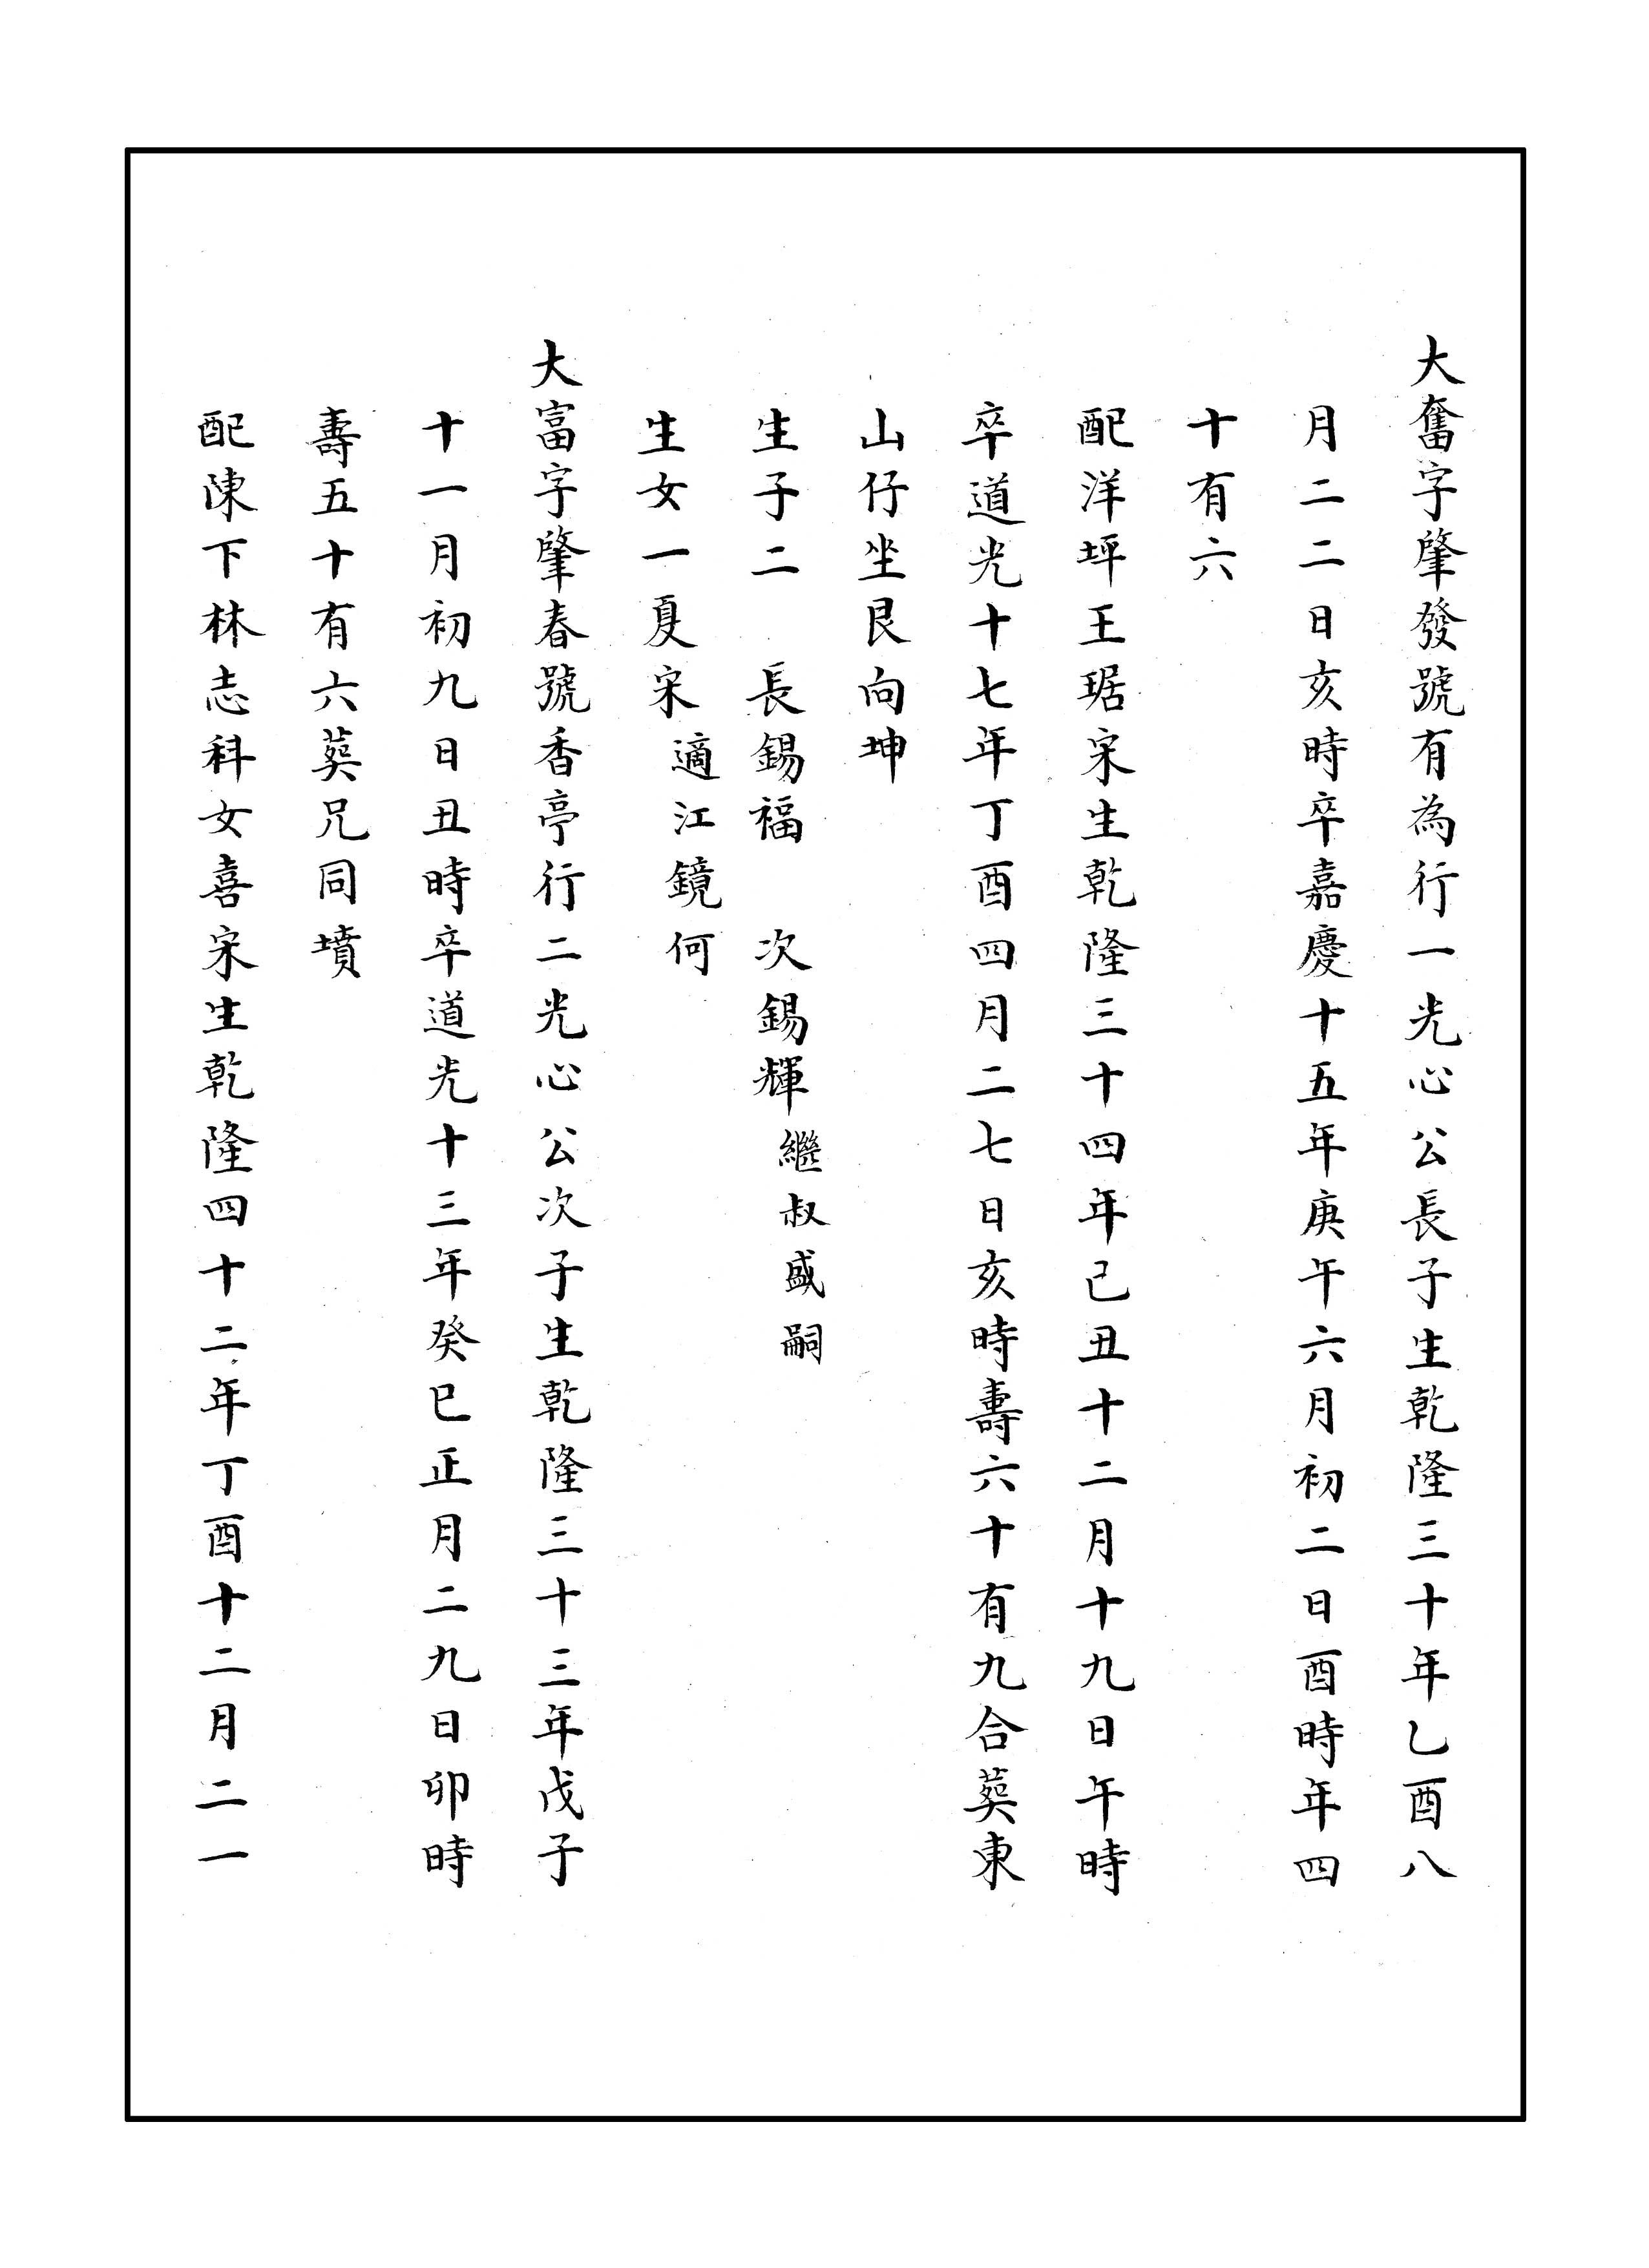 大奮字肇發號有為行一光心公長子生乾隆三十年乙酉八
月二二日亥時卒嘉慶十五年庚午六月初二日酉時年四
十有六
配洋坪王琚宋生乾隆三十四年己丑十二月十九日午時
卒道光十七年丁酉四月二七日亥時壽六十有九合葬東
山仔坐艮向坤
生子二　長錫福　次錫輝繼叔盛嗣
生女一夏宋適江鏡何
大富字肇春號香亭行二光心公次子生乾隆三十三年戊子
十一月初九日丑時卒道光十三年癸巳正月二九日卯時
壽五十有六葬兄同墳
配陳下林志科女喜宋生乾隆四十二年丁酉十二月二一